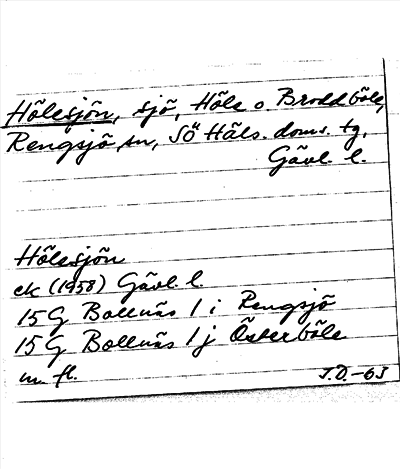 Hölesjön, sjö, Höle o Broddböle,
Rengsjö sn, Sö Häls. doms. tg,
Gävl. l.
Hölesjön
ek (1958) Gävl. l.
15G Bollnäs 1 i Rengsjö
15G Bollnäs 1 j Österböle
m. fl.
J.D.-63